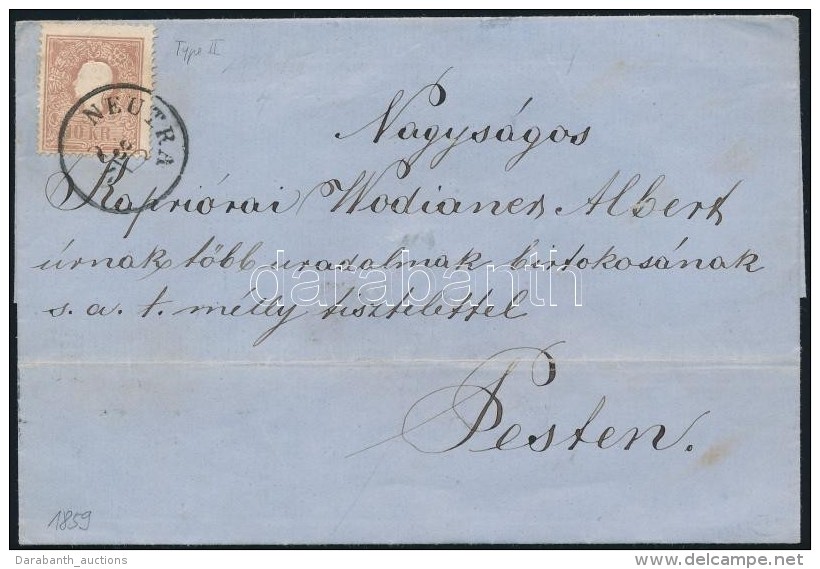 Type II
10 KR.
NEUTRA
Nagyságos
Kapriórai Wodianer Albert
úrnak több uradalmak birtokosának
darabanth
s. a. t. mélly tisztelettel
Pesten.
1859
Darabanth_auctions
http://www.delcampe.net